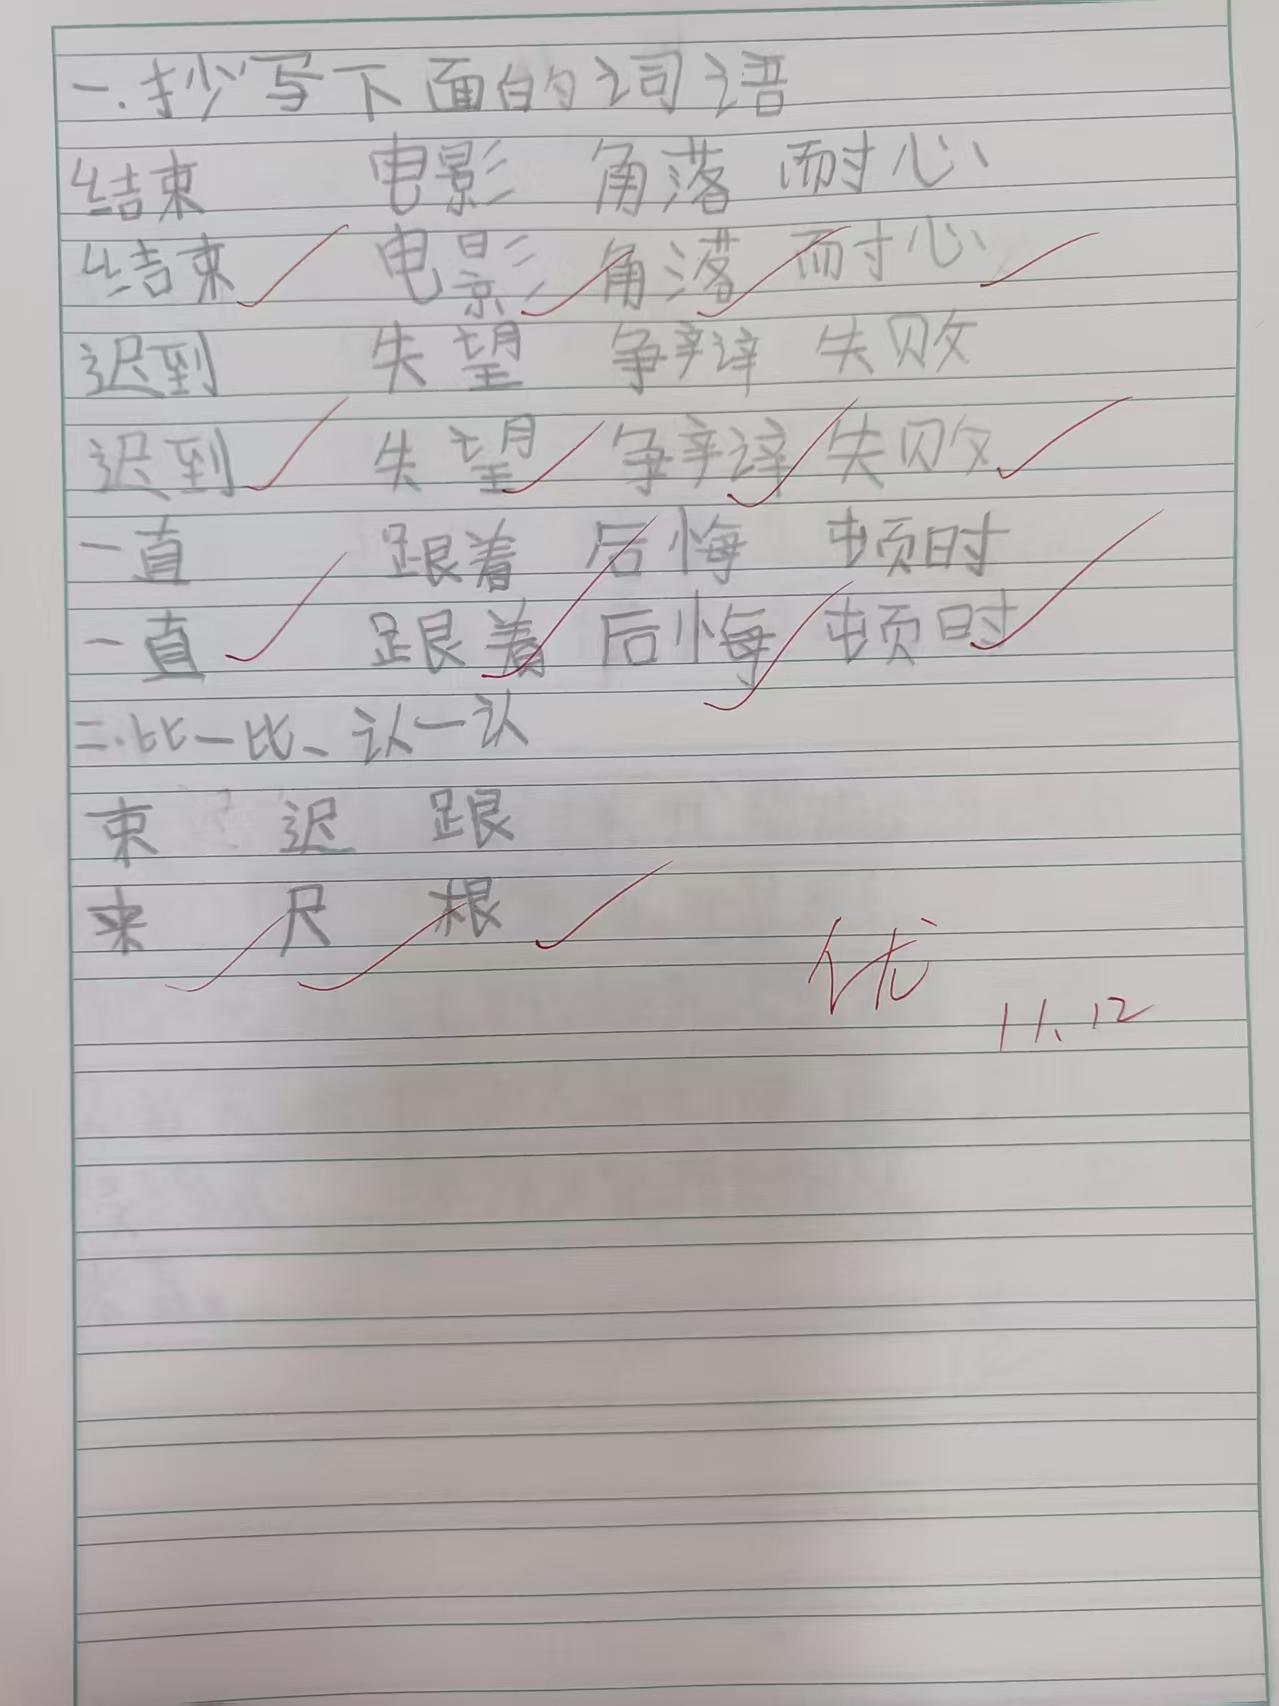 一.抄写下面的词语
结束 电影 角落 耐心
结束 电影 角落 耐心
迟到 失望 争辩 失败
迟到 失望 争辩 失败
一直 跟着 后悔 顿时
一直 跟着 后悔 顿时
二.比一比、认一认
束 迟 跟
来 尺 根
优
11.12